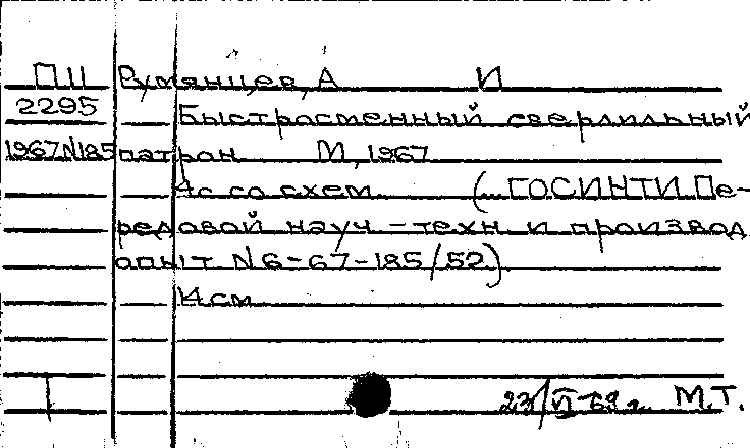 ПII Румянцев, А И
2295 Быстросменный сверлильный
1967N185 патрон М, 1967
4с со схем (...ГОСИНТИ Пе-
редовой науч-техн. и производ.
опыт N6-67-185/52)
14 см
23/VI-69 г. М.Т.